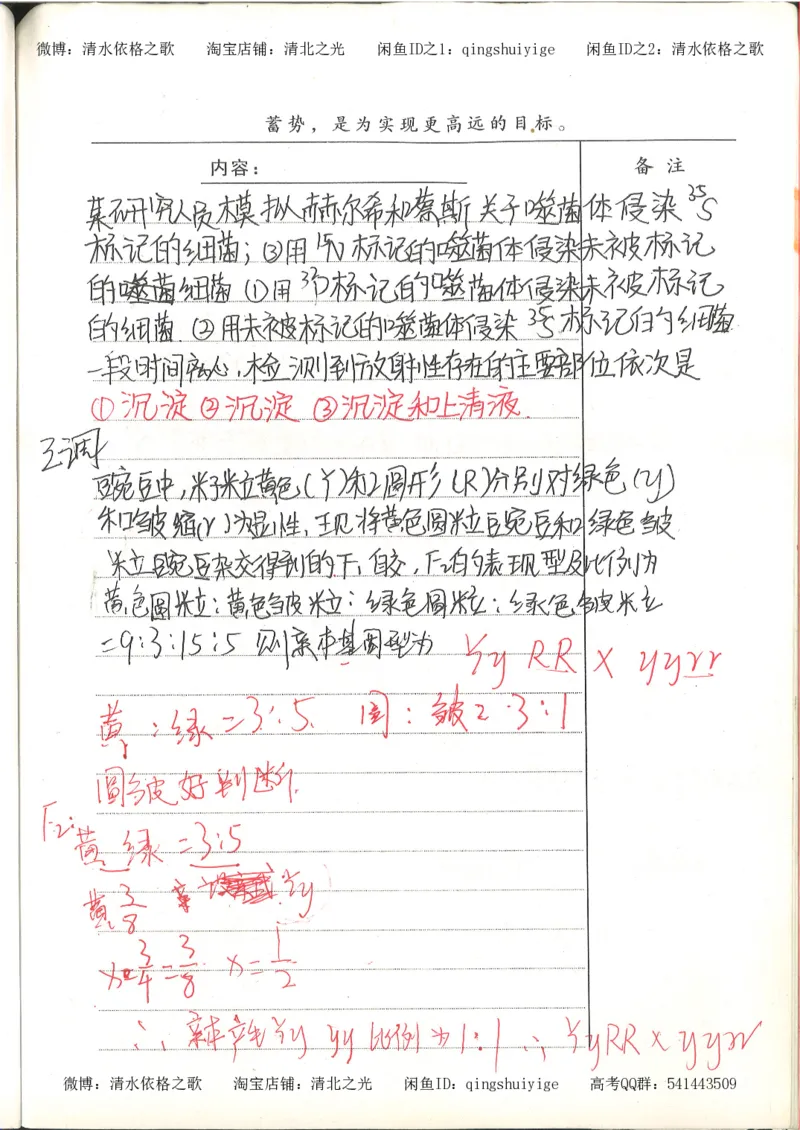 微博：清水依格之歌 淘宝店铺：清北之光 闲鱼ID之1：qingshuiyige 闲鱼ID之2：清水依格之歌
蓄势，是为实现更高远的目标。
内容： 备 注
某研究人员模拟赫尔希和蔡斯关于噬菌体侵染 35S
标记的细菌；③用 15N 标记的噬菌体侵染未被标记
的噬菌细菌 ①用 32P标记的噬菌体侵染未被标记
的细菌 ②用未被标记的噬菌体侵染 35S 标记的细菌
一段时间离心，检测到放射性存在的主要部位依次是
①沉淀 ②沉淀 ③沉淀和上清液.
豌豆中，籽粒黄色(Y)和圆形(R)分别对绿色(y)
和皱缩(r)为显性，现将黄色圆粒豌豆和绿色皱
粒豌豆杂交得到的F₁自交，F₂的表现型及比例为
黄色圆粒：黄色皱粒：绿色圆粒：绿色皱粒
=9:3:15:5 则亲本基因型为 YyRR × yyrr
黄：绿=3:5. 圆：皱=3:1
圆皱好判断.
F₂:
黄 绿 =3:5
黄 3/8 Yy
x·3/4=3/8 x=1/2
∴ 亲本产生Yy yy 比例为1:1 ∴ YyRR × yyrr
微博：清水依格之歌 淘宝店铺：清北之光 闲鱼ID：qingshuiyige 高考QQ群：541443509